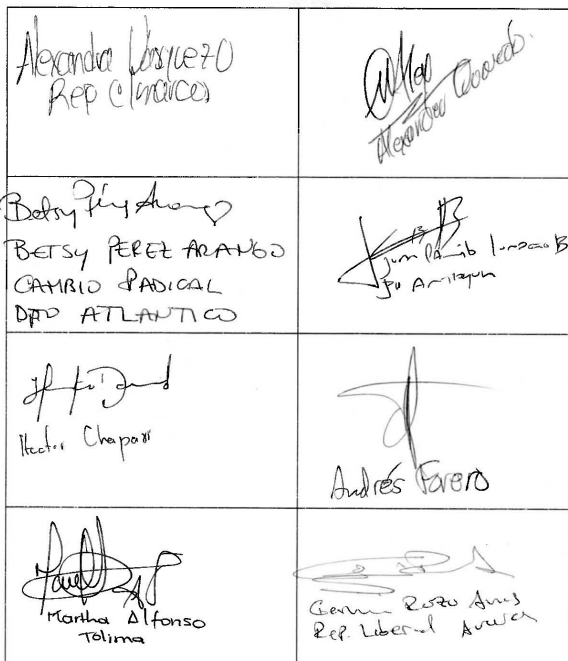 Alexandra Vásquez O
Rep C/marca
Alexander Quevedo.
Betsy Pérez Arango
BETSY PEREZ ARANGO
CAMBIO RADICAL
DPTO ATLANTICO
Juan Camilo Londoño B
Hector Chaparro
Andrés Forero
Martha Alfonso
Tolima
German Rozo Anis
Rep. Liberal Arauca